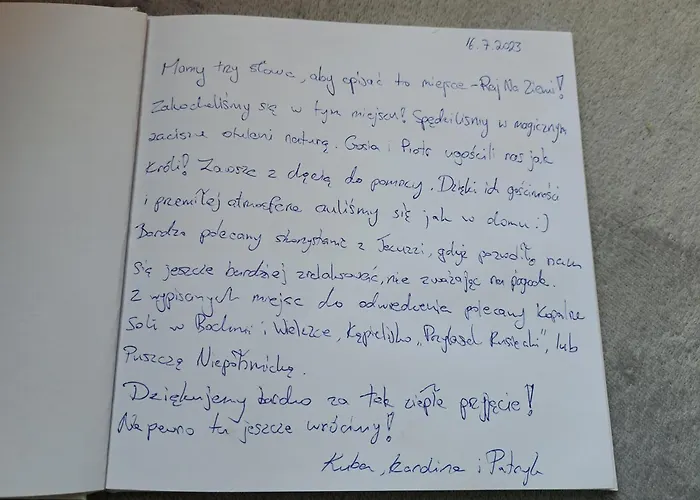 16.7.2023
Mamy trzy słowa, aby opisać to miejsce - Raj Na Ziemi!
Zakochaliśmy się w tym miejscu! Spędziliśmy w magicznym
zaciszu otuleni naturą. Gosia i Piotr ugościli nas jak
króli! Zawsze z chęcią do pomocy. Dzięki ich gościnności
i przemiłej atmosferze czuliśmy się jak w domu :)
Bardzo polecamy skorzystanie z Jacuzzi, gdyż pozwoliło nam
się jeszcze bardziej zrelaksować, nie zważając na pogodę.
Z wypisanych miejsc do odwiedzenia polecamy Kopalnie
Soli w Bochni i Wieliczce, Kąpielisko „Przylasek Rusiecki", lub
Puszczę Niepołomicką.
Dziękujemy bardzo za tak ciepłe przyjęcie!
Na pewno tu jeszcze wrócimy!
Kuba, Karolina i Patryk